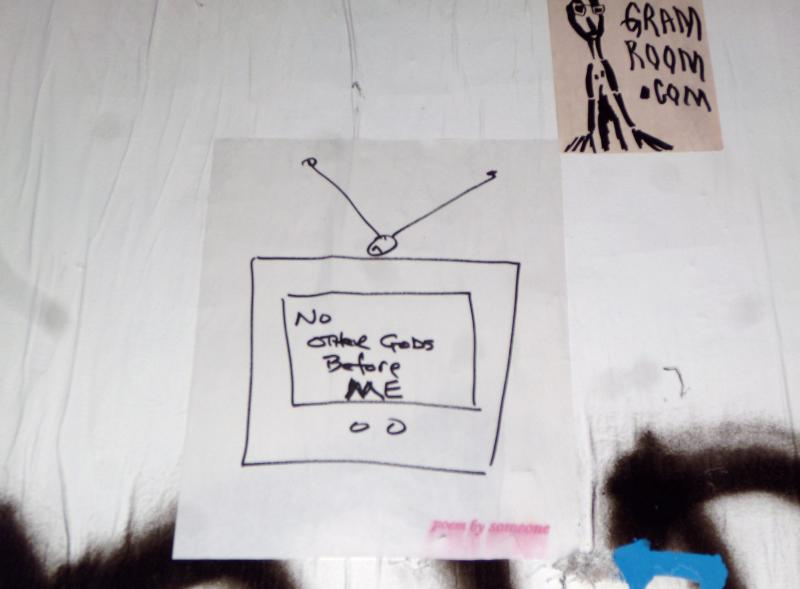 GRAM
ROOM
.COM
No
OTHER GODS
Before
ME
poem by someone